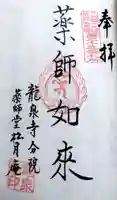 奉拝
薬師如来
龍泉寺分院
薬師堂松月庵